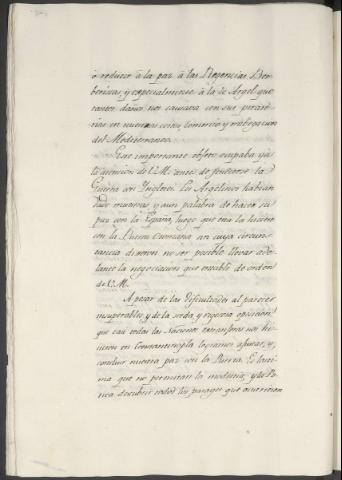 ó reducir à la paz à las Regencias Ber-
beriscas, y especialmente à la de Argel que
tantos daños nos causaba con sus pirate-
rías en nuestras costas, comercio y navegacion
del Mediterraneo.
Este importante objeto ocupaba ya
la atencion de V.M. antes de fenecerse la
Guerra con Inglaterra. Los Argelinos habian
dado muestras, y aun palabra de hacer su
paz con la España, luego que esta la hiciese
con la Puerta Otomana sin cuya circuns-
tancia dixeron no ser posible llevar ade-
lante la negociacion que entablé de orden
de V.M.
A pesar de las dificultades al parecer
insuperables, y de la sorda, y vigorosa oposicion
que casi todas las Naciones extrangeras nos hi-
cieron en Constantinopla logramos ajustar, y
concluir nuestra paz con la Puerta. Es lasti-
ma que no permitan la modestia, y la Po-
litica descubrir todos los parages que ocurrieron